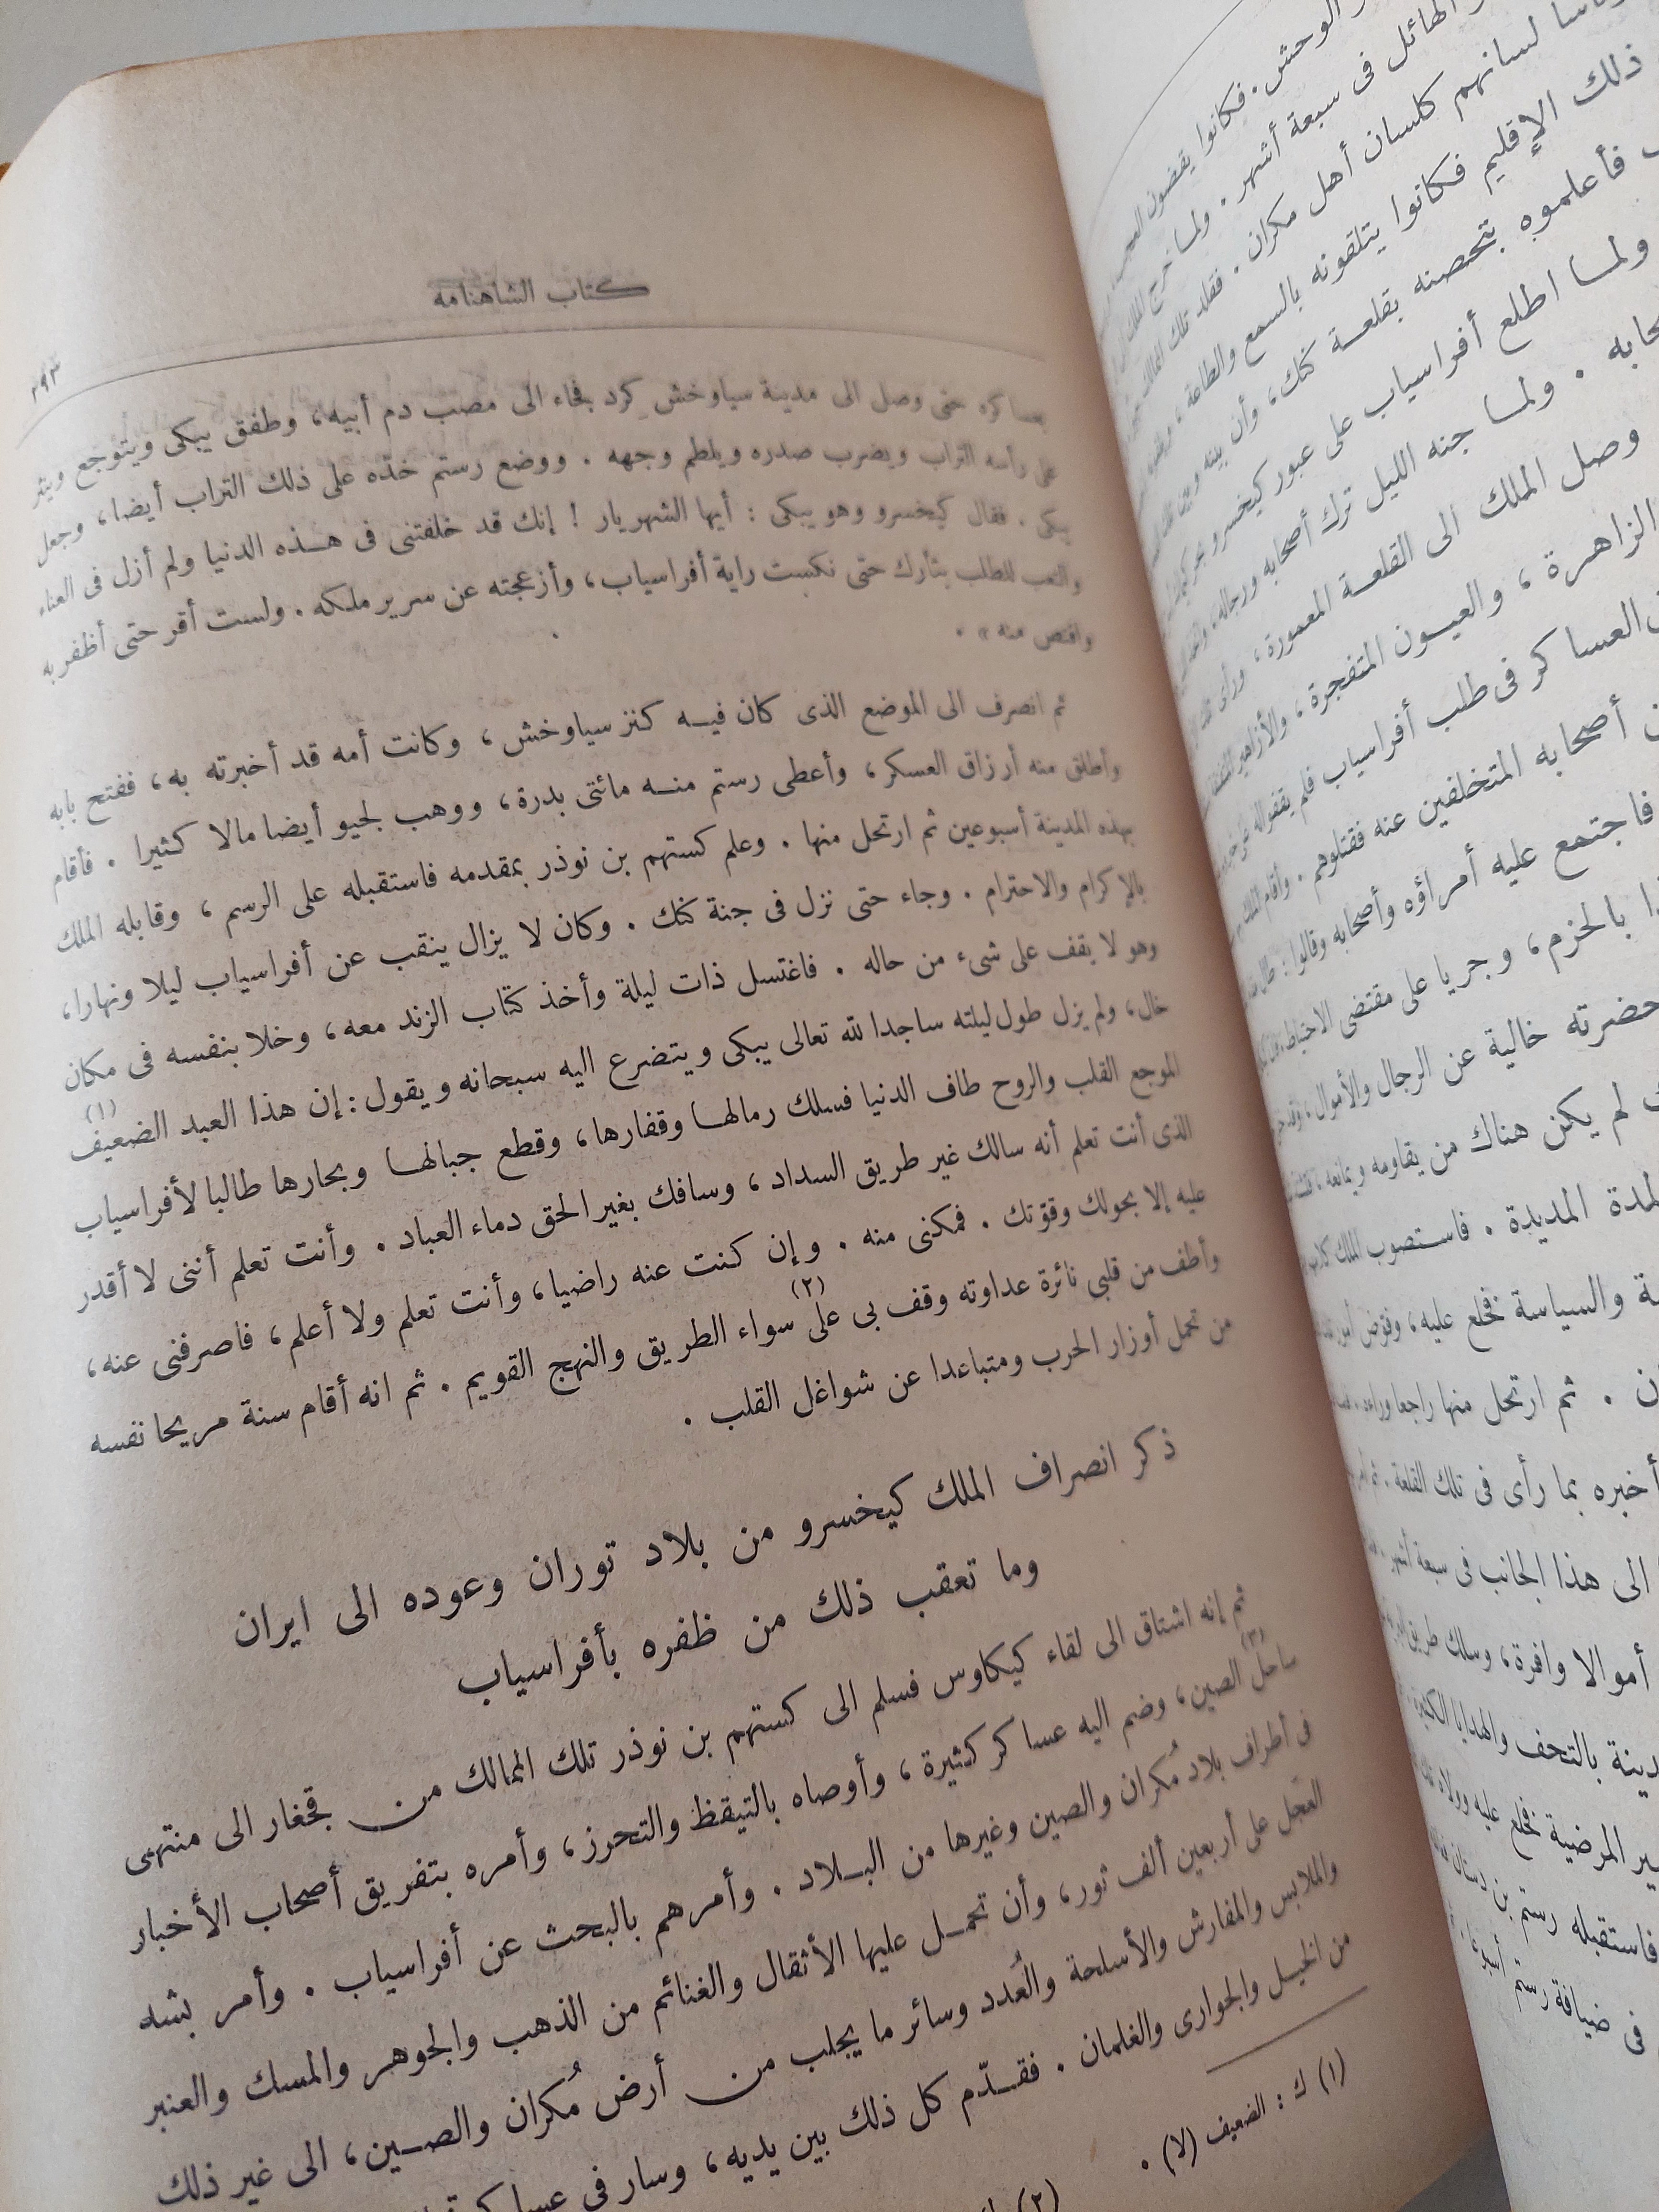 كتاب الشاهنامه
٢٩٣
بعساكره حتى وصل الى مدينة سياوخش كرد بفاء الى مصب دم أبيه، وطفق يبكى ويتوجع وينثر
على رأسه التراب ويضرب صدره ويلطم وجهه . ووضع رستم خدّه على ذلك التراب أيضا، وجعل
يبكى . فقال كيخسرو وهو يبكى : أيها الشهريار ! إنك قد خلفتنى فى هذه الدنيا ولم أزل فى العناء
والتعب للطلب بثأرك حتى نكست راية أفراسياب، وأزعجته عن سرير ملكه . ولست أقر حتى أظفر به
وأقتص منه » .
ثم انصرف الى الموضع الذى كان فيه كنز سياوخش ، وكانت أمه قد أخبرته به، ففتح بابه
وأطلق منه أرزاق العسكر، وأعطى رستم منه مائتى بدرة، ووهب لجيو أيضا مالا كثيرا . فأقام
بهذه المدينة أسبوعين ثم ارتحل منها . وعلم كستهم بن نوذر بمقدمه فاستقبله على الرسم ، وقابله الملك
بالإكرام والاحترام . وجاء حتى نزل فى جنة كنك . وكان لا يزال ينقب عن أفراسياب ليلا ونهارا،
وهو لا يقف على شىء من حاله . فاغتسل ذات ليلة وأخذ كتاب الزند معه، وخلا بنفسه فى مكان
خال، ولم يزل طول ليلته ساجدا لله تعالى يبكى ويتضرع اليه سبحانه ويقول : إن هذا العبد الضعيف (١)
الموجع القلب والروح طاف الدنيا فسلك رمالها وقفارها، وقطع جبالها وبحارها طالبا لأفراسياب
الذى أنت تعلم أنه سالك غير طريق السداد ، وسافك بغير الحق دماء العباد . وأنت تعلم أننى لا أقدر
عليه إلا بحولك وقوّتك . فمكنى منه . وإن كنت عنه راضيا، وأنت تعلم ولا أعلم، فاصرفنى عنه،
وأطف من قلبى نائرة عداوته وقف بى على (٢) سواء الطريق والنهج القويم . ثم انه أقام سنة مريحا نفسه
من تحمل أوزار الحرب ومتباعدا عن شواغل القلب .
ذكر انصراف الملك كيخسرو من بلاد توران وعوده الى ايران
وما تعقب ذلك من ظفره بأفراسياب
ثم إنه اشتاق الى لقاء كيكاوس فسلم الى كستهم بن نوذر تلك الممالك من قجغار الى منتهى
ساحل (٣) الصين، وضم اليه عساكر كثيرة ، وأوصاه بالتيقظ والتحرز، وأمره بتفريق أصحاب الأخبار
فى أطراف بلاد مُكران والصين وغيرها من البلاد . وأمرهم بالبحث عن أفراسياب . وأمر بشد
العجل على أربعين ألف ثور، وأن تحمل عليها الأثقال والغنائم من الذهب والجوهر والمسك والعنبر
والملابس والمفارش والأسلحة والعُدد وسائر ما يجلب من أرض مُكران والصين، الى غير ذلك
من الخيل والجوارى والغلمان . فقدّم كل ذلك بين يديه، وسار فى
(١) ك : الضعيف (لا) .
(٢)
الوحش . فكانوا يقصون
الهائل فى سبعة أشهر . ولما خرج الملك
لسانهم كلسان أهل مكران . فقلد تلك
ذلك الإقليم فكانوا يتلقونه بالسمع والطاعة
فأعلموه بتحصنه بقلعة كنك، وأن بينه وبين
ولما اطلع أفراسياب على عبور كيخسرو
. ولما جنه الليل ترك أصحابه ورجاله
وصل الملك الى القلعة المعمورة، ورأى تلك
الزاهرة ، والعيون المتفجرة ، والأزاهير
العساكر فى طلب أفراسياب فلم يقفوا له على
أصحابه المتخلفين عنه فقتلوهم . وأقام الملك
فاجتمع عليه أمراؤه وأصحابه وقالوا :
بالحزم، وجريا على مقتضى الاحتياط،
حضرته خالية عن الرجال والأموال ،
لم يكن هناك من يقاومه ويمانعه ،
المدة المديدة . فاستصوب الملك
والسياسة فخلع عليه ، وفوّض
. ثم ارتحل منها راجعا وراءه
أخبره بما رأى فى تلك القلعة .
الى هذا الجانب فى سبعة أشهر
أموالا وافرة، وسلك طريق
بالتحف والهدايا الكثيرة
المرضية فخلع عليه وولاه
فاستقبله رستم بن دستان
فى ضيافة رستم